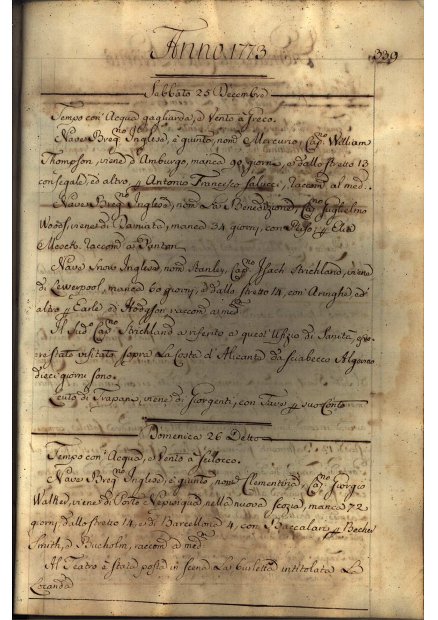 Anno 1773
339
Sabbato 25 Decembre
Tempo con Acqua gagliarda, e Vento a Greco.
Nave Breq:no Inglese, è giunto, nom: Mercurio, Cap:no William
Thompson, viene d'Amburgo, manca 90 giorni, e dallo stretto 13
con segale, ed altro p Antonio Francesco Salucci, Raccom: al med:
Nave Breq:no Inglese, nom: La Benedizione, Cap:no Guglielmo
Woods, viene di Damiata, manca 34 giorni, con Riso p Elia
Raccom: a
Nave Snow Inglese, nom: Stanley, Cap:no Isach Strichland, viene
di Leverpool, manca 60 giorni, e dallo stretto 14, con Aringhe, ed
altro p Earle, ed Hodgson raccom: a med:
Il Sud:o Cap:no Strichland à riferito a quest'Ufizio di Sanità,
stato visitato sopra la Costa d'Alicante da Sciabecco Algerino
dieci giorni sono.
Leuto di Trapani, viene di Giorgenti, con Fave p suo Conto
Domenica 26 Detto
Tempo con Acqua, e Vento a Scilocco.
Nave Breq:no Inglese, è giunto, nom: Clementina, Cap:no Giorgio
Walker, viene di Porto nella nuova Scozia, manca 72
giorni, dallo stretto 14, e di Barcellona 4, con Baccalari p
Smith, e raccom: a med:
Al Teatro è stata posta in scena La burletta intitolata La
Locanda